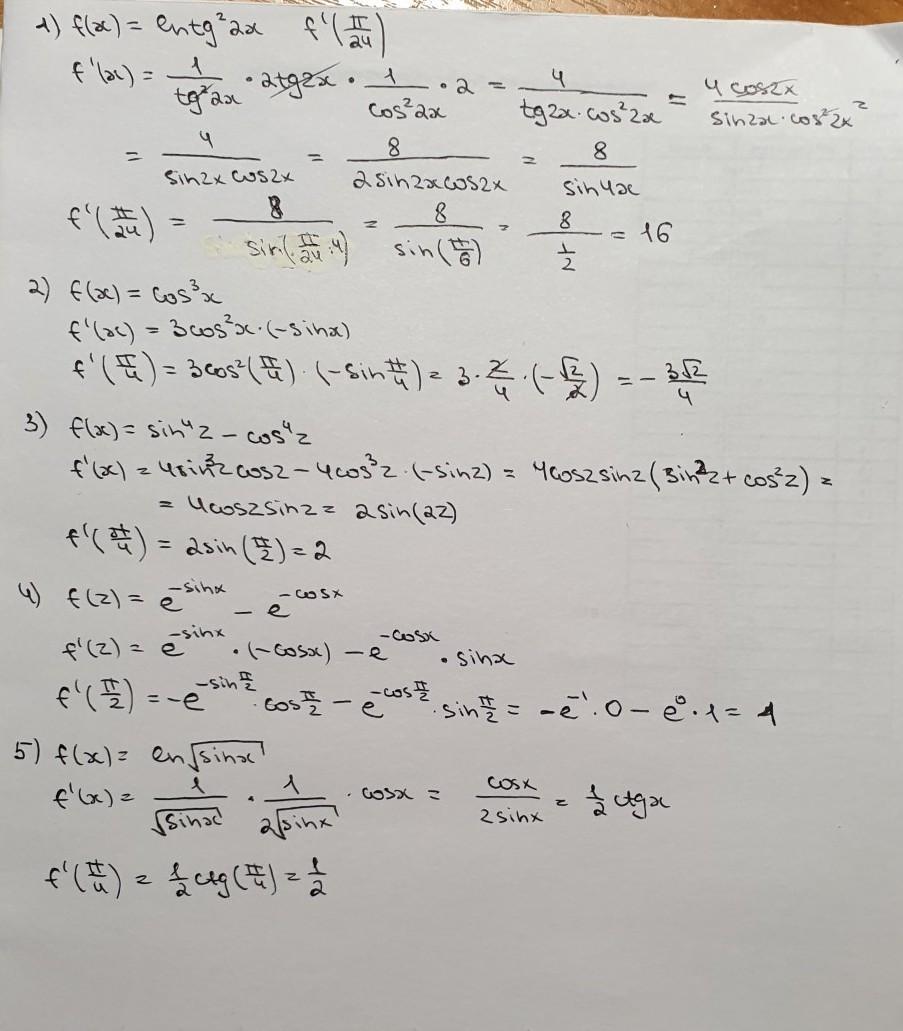 1) f(x) = ln tg²2x   f'(π/24)
f'(x) = 1/(tg²2x) · 2tg2x · 1/(cos²2x) · 2 = 4/(tg2x·cos²2x) = (4cos2x)/(sin2x·cos²2x) =
= 4/(sin2x cos2x) = 8/(2sin2xcos2x) = 8/(sin4x)
f'(π/24) = 8/(sin(π/24·4)) = 8/(sin(π/6)) = 8/(1/2) = 16
2) f(x) = cos³x
f'(x) = 3cos²x·(-sinx)
f'(π/4) = 3cos²(π/4) · (-sin π/4) = 3 · 2/4 · (-√2/2) = - 3√2/4
3) f(x) = sin⁴z - cos⁴z
f'(x) = 4sin³z cosz - 4cos³z ·(-sinz) = 4coszsinz(sin²z + cos²z) =
= 4coszsinz = 2sin(2z)
f'(π/4) = 2sin(π/2) = 2
4) f(z) = e^(-sinx) - e^(-cosx)
f'(z) = e^(-sinx) · (-cosx) - e^(-cosx) · sinx
f'(π/2) = -e^(-sin π/2) · cos π/2 - e^(-cos π/2) · sin π/2 = -e⁻¹ · 0 - e⁰ · 1 = 1
5) f(x) = ln√(sinx)
f'(x) = 1/√(sinx) · 1/(2√(sinx)) · cosx = cosx/(2sinx) = 1/2 ctgx
f'(π/4) = 1/2 ctg(π/4) = 1/2